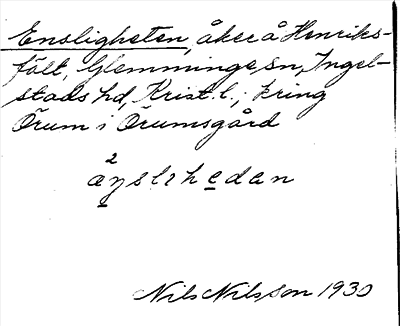 Ensligheten, åker å Henriks-
fält, Glemminge sn, Ingel-
stads hd, Krist. l.; kring
Örum i Örumsgård
2
äŋslıhedan
Nils Nilsson 1930